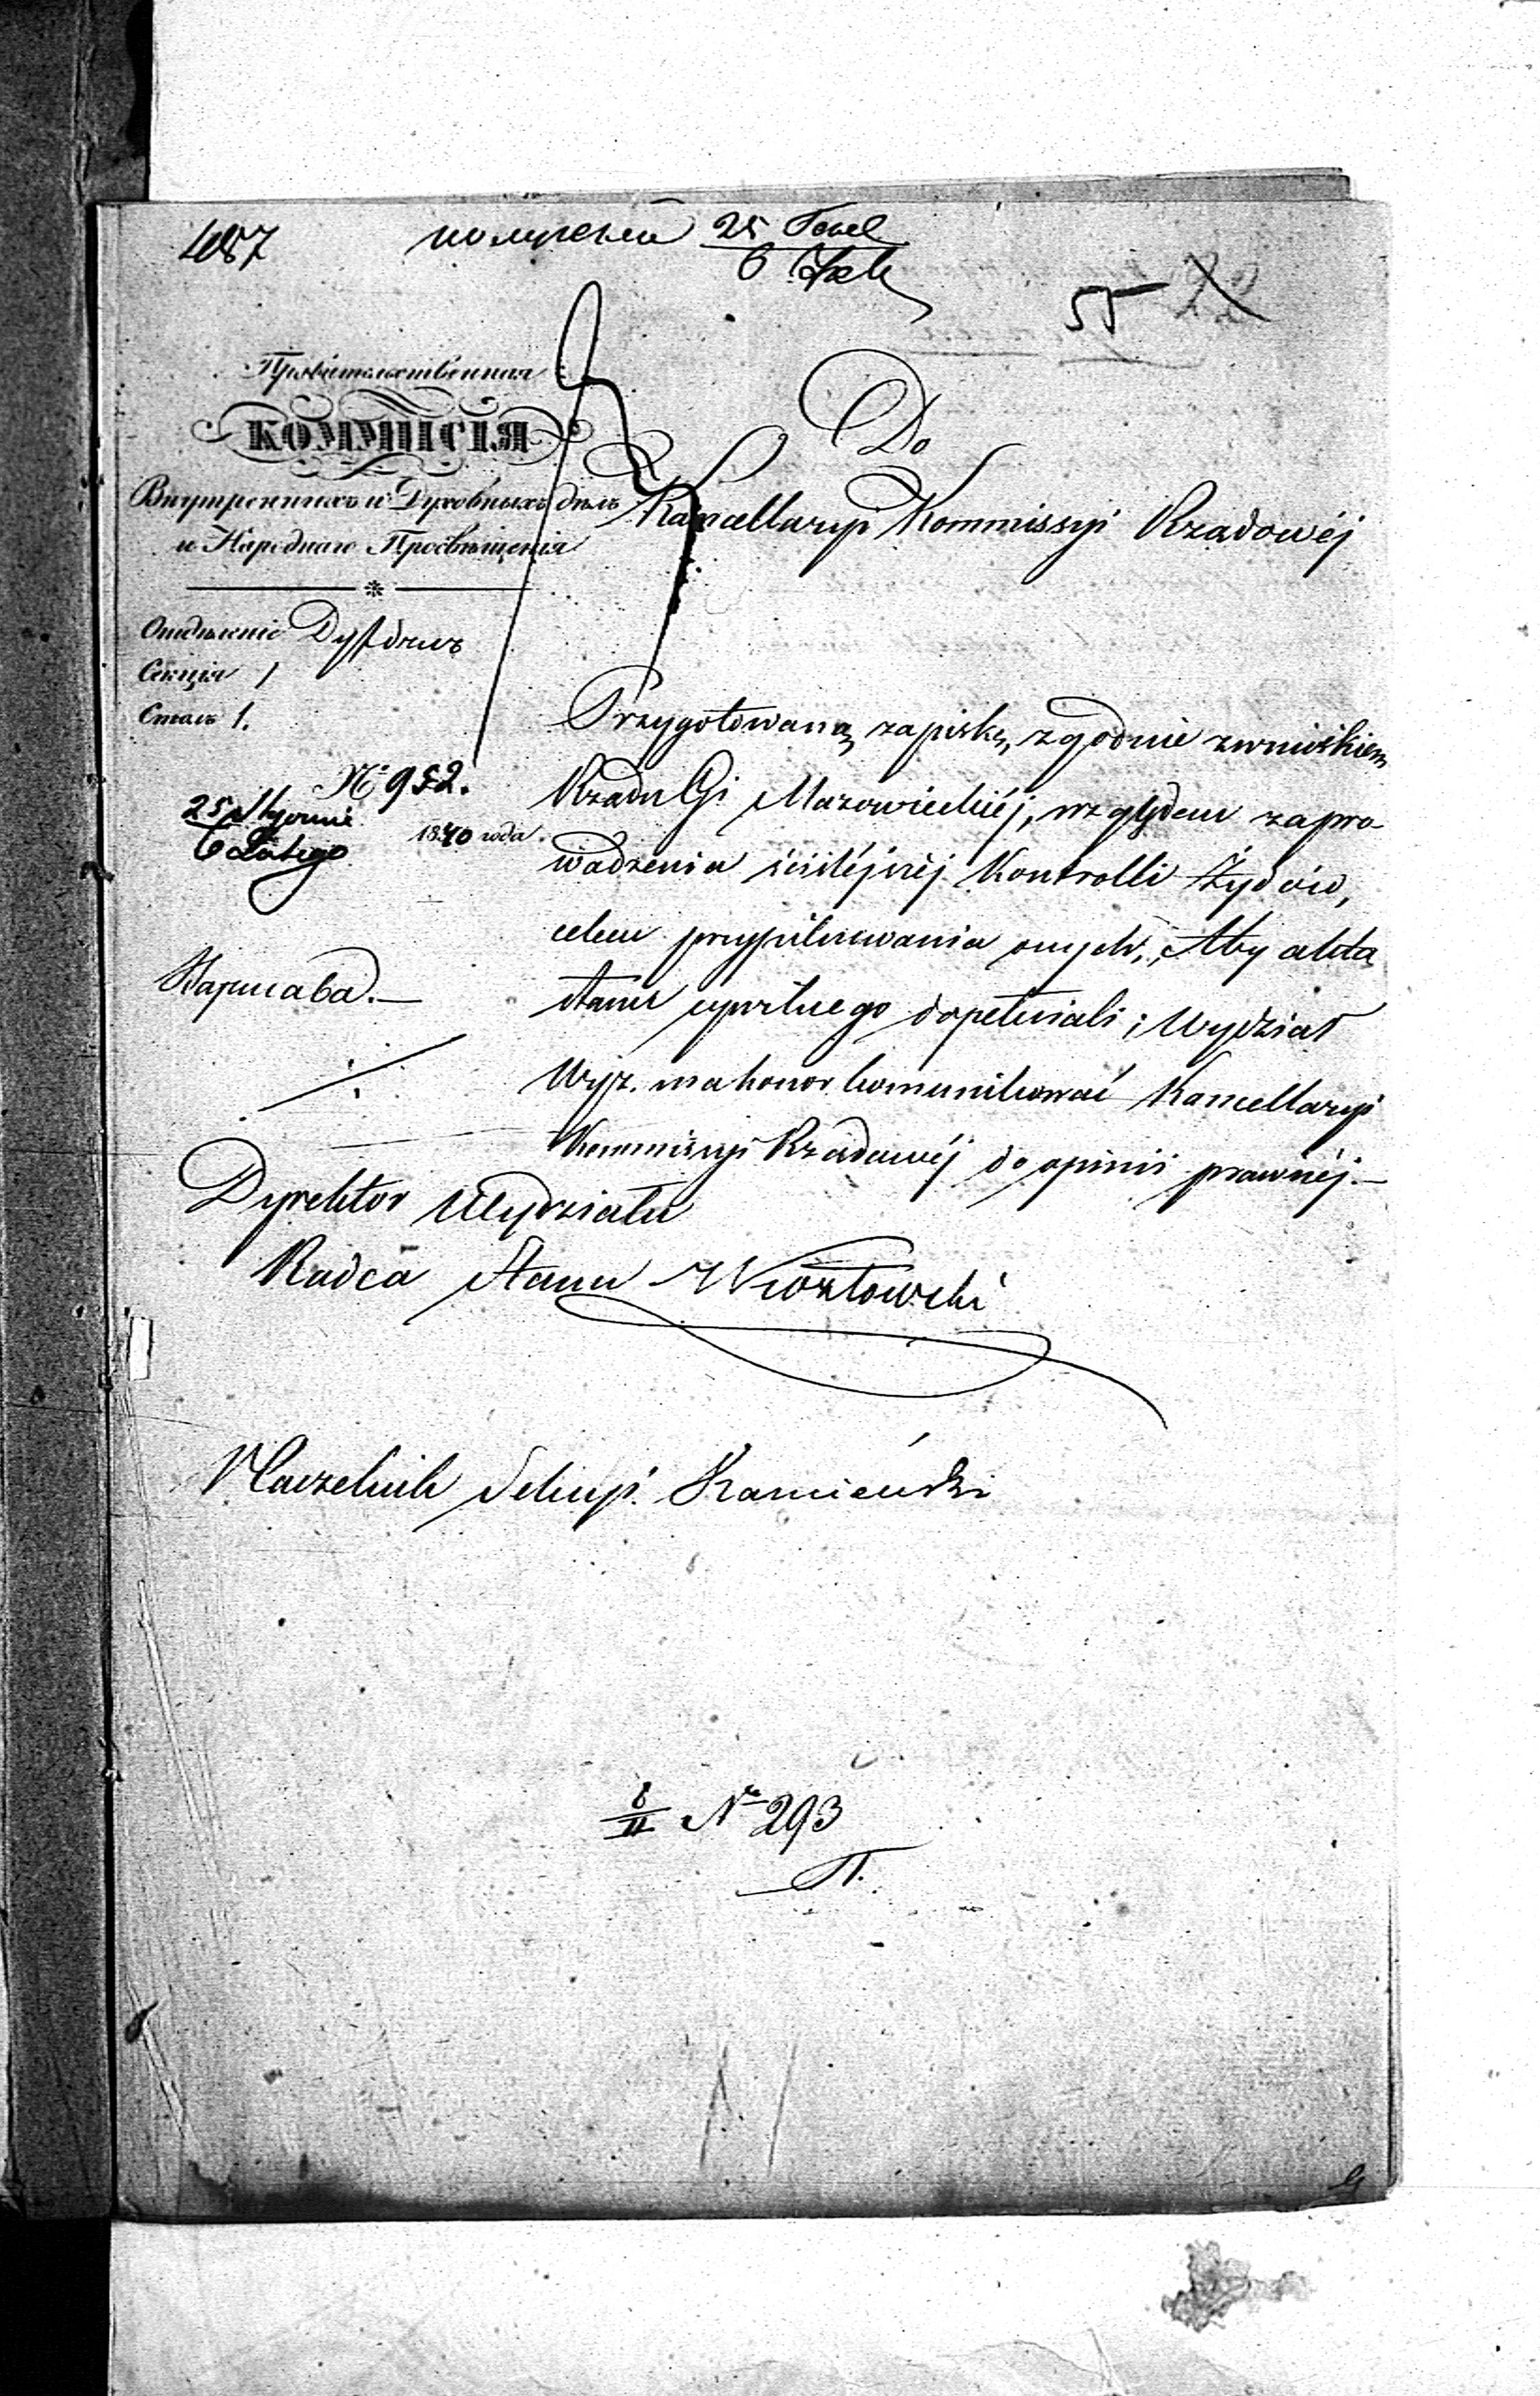 1087
получено 25 Генв
6 Фев
55
Правительственная
КОММИСІЯ
Внутреннихъ и Духовныхъ дѣлъ
и Народнаго Просвѣщенія
Отдѣленіе
Секція 1
Столъ 1.
№ 952.
25 Stycznia
6 Lutego
1840 года.
Варшава.—
Do
Kancellaryi Kommissyi Rządowéj
Przygotowaną zapiskę, zgodnie z wnioskiem
Rządu Gi Mazowieckiéj, względem zapro-
wadzenia ściśléjszéj Kontrolli Żydów,
celem przypilnowania onych, Aby akta
stanu cywilnego dopełniali; Wydział
Wyz. ma honor komunikować Kancellaryi
Kommissyi Rządowéj do opinii prawnéj.—
Dyrektor Wydziału
Radca Stanu
Naczelnik Sekcyi Kamieński
8/II № 293
П.